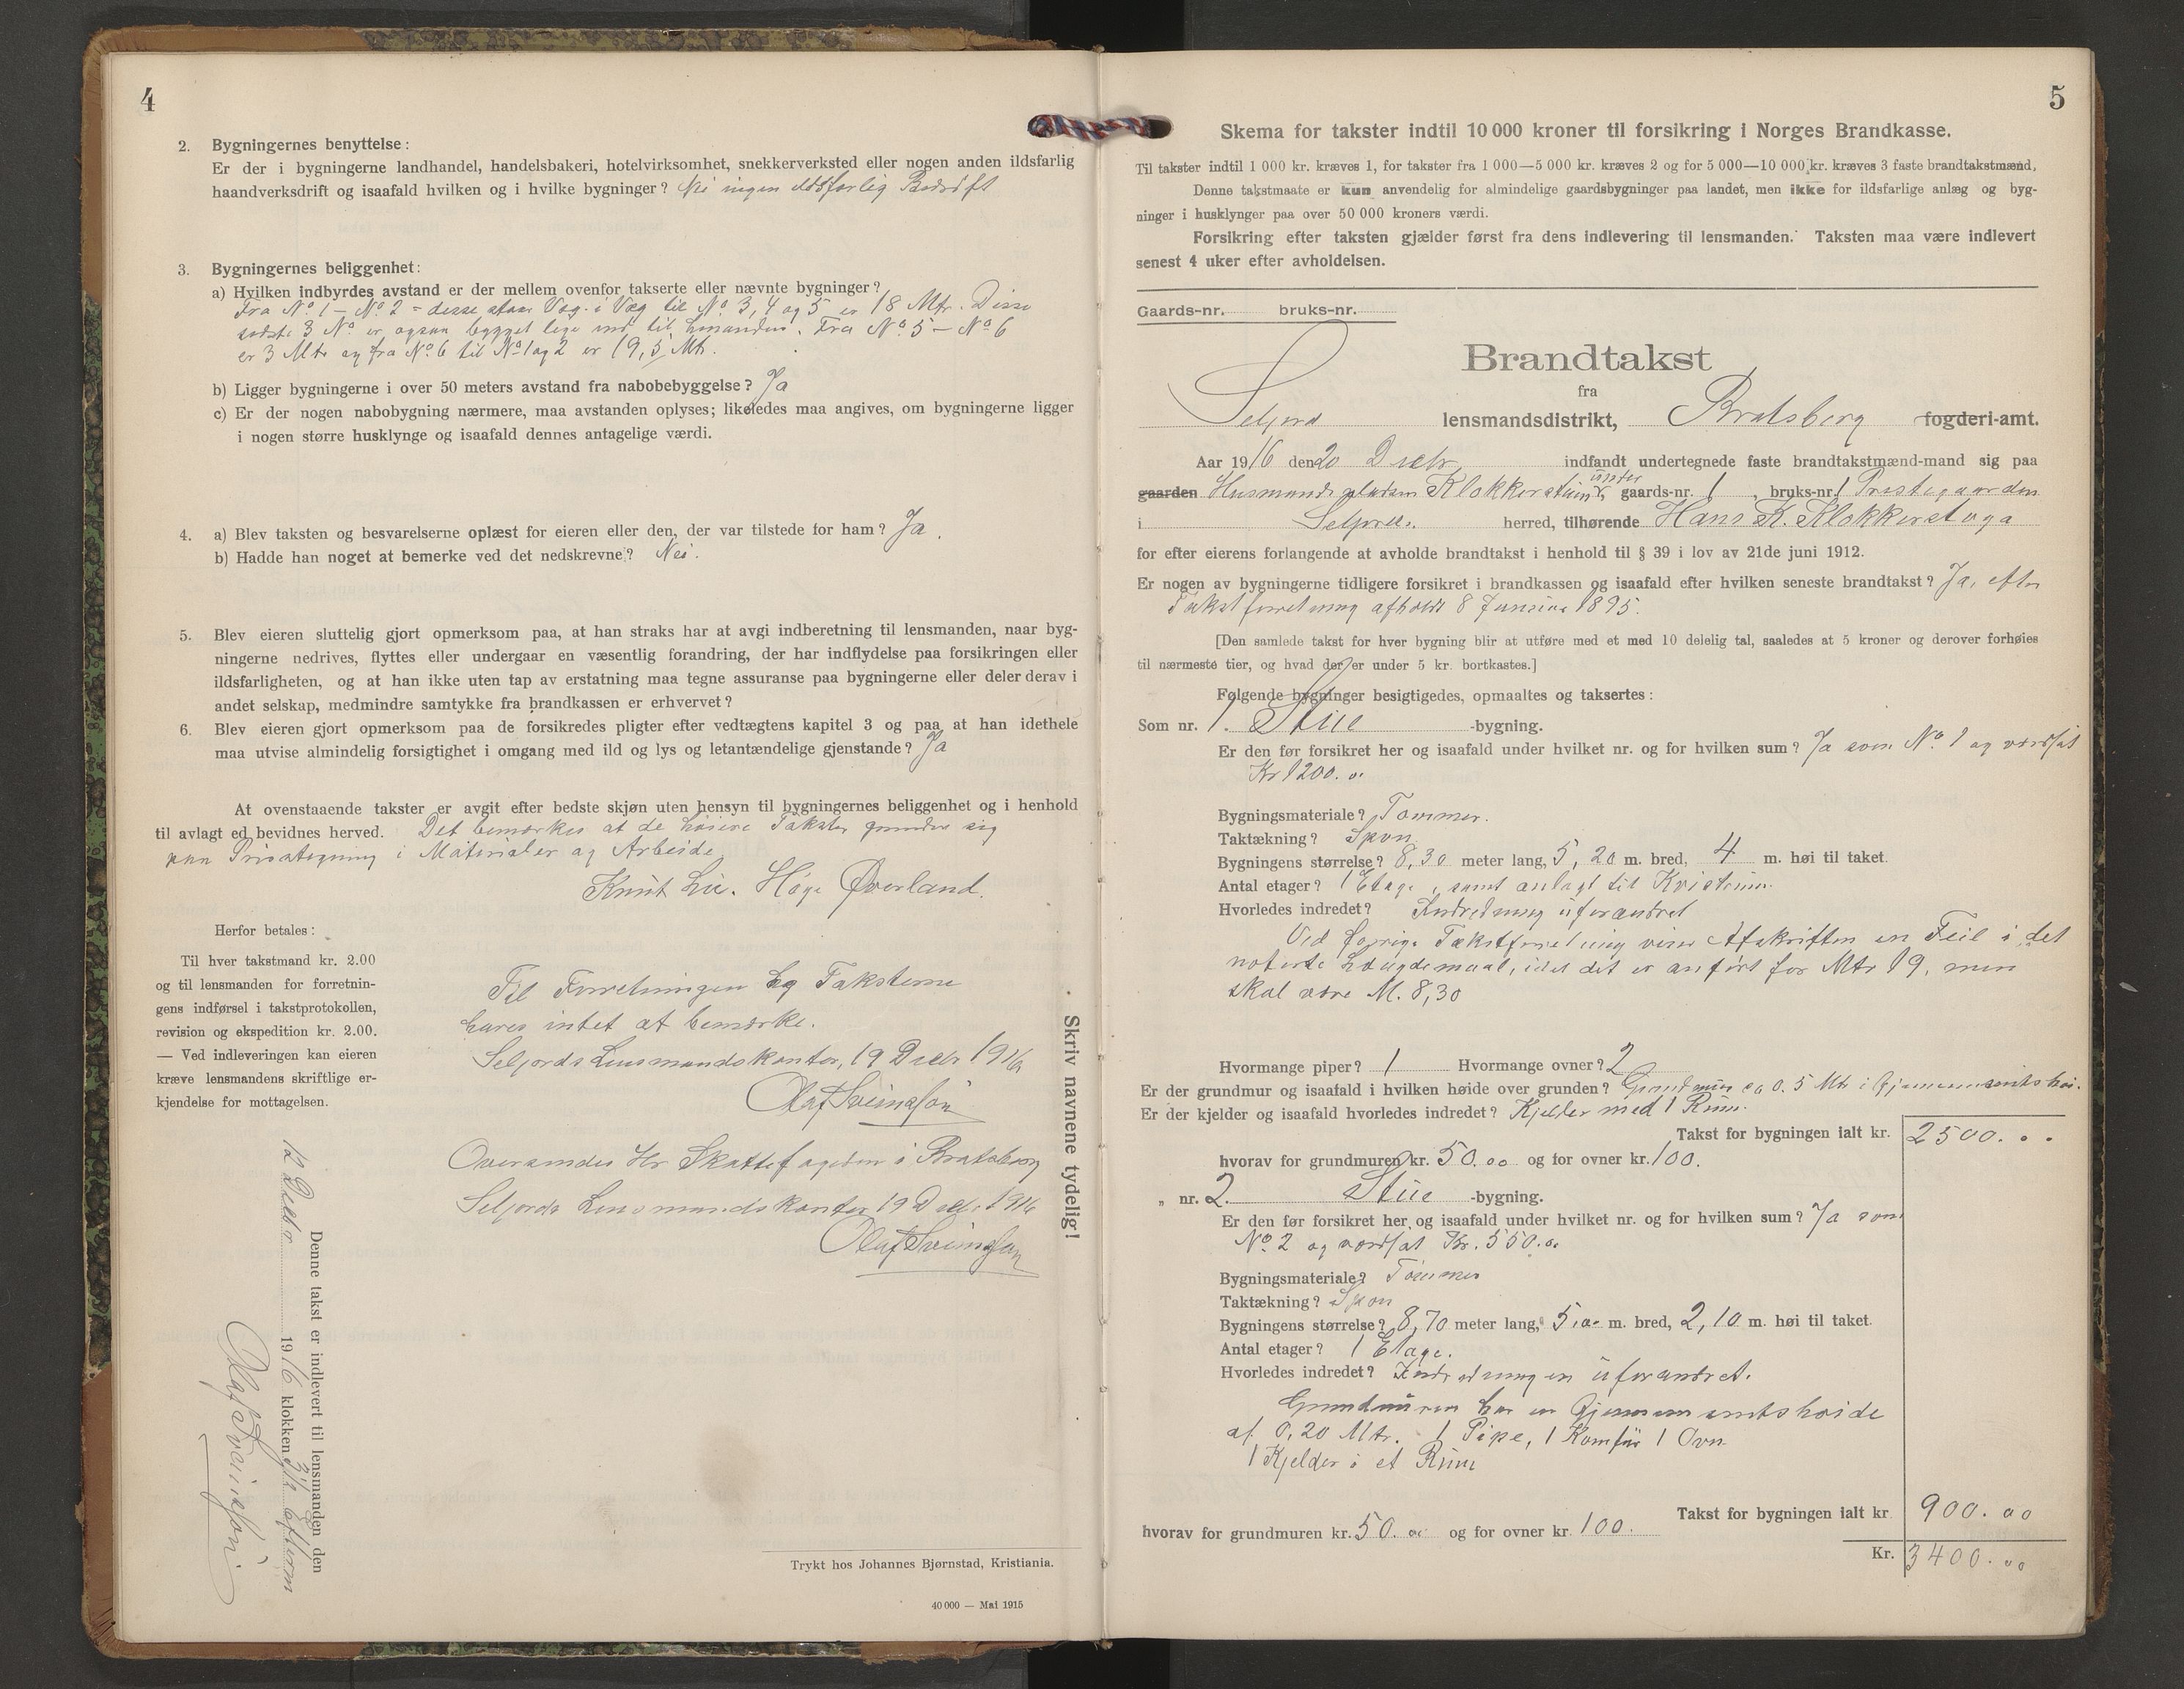 4
2. Bygningernes benyttelse:
Er der i bygningerne landhandel, handelsbakeri, hotelvirksomhet, snekkerverksted eller nogen anden ildsfarlig
haandverksdrift og isaafald hvilken og i hvilke bygninger? Nei ingen ildsfarlig Bedrift
3. Bygningernes beliggenhet:
a) Hvilken indbyrdes avstand er der mellem ovenfor takserte eller nævnte bygninger?
Fra No 1 – No 2 = disse staar Væg i Væg til No 3, 4 og 5 er 18 Mtr. Disse
sidste 3 No er ogsaa bygget lige ind til hinanden. Fra No 5 – No 6
er 3 Mtr og fra No 6 til No 1 og 2 er 19,5 Mtr.
b) Ligger bygningerne i over 50 meters avstand fra nabobebyggelse? Ja
c) Er der nogen nabobygning nærmere, maa avstanden oplyses; likeledes maa angives, om bygningerne ligger
i nogen større husklynge og isaafald dennes antagelige værdi.
4. a) Blev taksten og besvarelserne oplæst for eieren eller den, der var tilstede for ham? Ja.
b) Hadde han noget at bemerke ved det nedskrevne? Nei.
5. Blev eieren sluttelig gjort opmerksom paa, at han straks har at avgi indberetning til lensmanden, naar byg-
ningerne nedrives, flyttes eller undergaar en væsentlig forandring, der har indflydelse paa forsikringen eller
ildsfarligheten, og at han ikke uten tap av erstatning maa tegne assuranse paa bygningerne eller deler derav i
andet selskap, medmindre samtykke fra brandkassen er erhvervet?
6. Blev eieren gjort opmerksom paa de forsikredes pligter efter vedtægtens kapitel 3 og paa at han idethele
maa utvise almindelig forsigtighet i omgang med ild og lys og letantændelige gjenstande? Ja
At ovenstaaende takster er avgit efter bedste skjøn uten hensyn til bygningernes beliggenhet og i henhold
til avlagt ed bevidnes herved. Det bemærkes at de høiere Takster grunder sig
paa Prisstegning i Materialer og Arbeide
Knut Lie. Høge Øverland.
Herfor betales:
Til hver takstmand kr. 2.00
og til lensmanden for forretnin-
gens indførsel i takstprotokollen,
revision og ekspedition kr. 2.00.
— Ved indleveringen kan eieren
kræve lensmandens skriftlige er-
kjendelse for mottagelsen.
Til Forretningen og Taksterne
haves intet at bemærke.
Seljords Lensmandskontor, 19 Decbr 1916
Olaf Sveinsson
Oversendes Hr Skattefogden i Bratsberg
Seljords Lensmandskontor 19 Decbr 1916
Olaf Sveinsson
Skriv navnene tydelig!
Denne takst er indlevert til lensmanden den
12 Decbr 1916 klokken 3 1/2 efterm
Olaf Sveinsson
Trykt hos Johannes Bjørnstad, Kristiania.
40 000 — Mai 1915
5
Skema for takster indtil 10 000 kroner til forsikring i Norges Brandkasse.
Til takster indtil 1 000 kr. kræves 1, for takster fra 1 000—5 000 kr. kræves 2 og for 5 000—10 000 kr. kræves 3 faste brandtakstmænd,
Denne takstmaate er kun anvendelig for almindelige gaardsbygninger paa landet, men ikke for ildsfarlige anlæg og byg-
ninger i husklynger paa over 50 000 kroners værdi.
Forsikring efter taksten gjælder først fra dens indlevering til lensmanden. Taksten maa være indlevert
senest 4 uker efter avholdelsen.
Gaards-nr. bruks-nr.
Brandtakst
fra
Seljord lensmandsdistrikt, Bratsberg fogderi-amt.
Aar 1916 den 20 Decbr. indfandt undertegnede faste brandtakstmænd-mand sig paa
gaarden Husmandspladsen Klokkerstuen under gaards-nr. 1, bruks-nr. 1 Prestegaarden
i Seljords herred, tilhørende Hans K. Klokkerstoga
for efter eierens forlangende at avholde brandtakst i henhold til § 39 i lov av 21de juni 1912.
Er nogen av bygningerne tidligere forsikret i brandkassen og isaafald efter hvilken seneste brandtakst? Ja, efter
Takstforretning afholdt 8 Januar 1895.
[Den samlede takst for hver bygning blir at utføre med et med 10 delelig tal, saaledes at 5 kroner og derover forhøies
til nærmeste tier, og hvad der er under 5 kr. bortkastes.]
Følgende bygninger besigtigedes, opmaaltes og taksertes:
Som nr. 1. Stue -bygning.
Er den før forsikret her og isaafald under hvilket nr. og for hvilken sum? Ja som No 1 og værdsat
Kr 1200.00
Bygningsmateriale? Tømmer.
Taktækning? Spon
Bygningens størrelse? 8,30 meter lang, 5,20 m. bred, 4 m. høi til taket.
Antal etager? 1 Etage, samt anlagt til Kvistrum.
Hvorledes indredet? Indredning uforandret
Ved forrige Takstforretning viser Afskriften en Feil i det
noterte Længdemaal, idet det er anført for Mtr 19, men
skal være M. 8,30
Hvormange piper? 1 Hvormange ovner? 2
Er der grundmur og isaafald i hvilken høide over grunden? Grundmur ca 0.5 Mtr i Gjennemsnitshøi.
Er der kjelder og isaafald hvorledes indredet? Kjelder med 1 Rum.
Takst for bygningen ialt kr. 2500.00
hvorav for grundmuren kr. 50.00 og for ovner kr. 100.
„ nr. 2. Stue -bygning.
Er den før forsikret her og isaafald under hvilket nr. og for hvilken sum? Ja som
No. 2 og værdsat Kr. 550.00
Bygningsmateriale? Tømmer
Taktækning? Spon
Bygningens størrelse? 8,70 meter lang, 5,00 m. bred, 2,10 m. høi til taket.
Antal etager? 1 Etage.
Hvorledes indredet? Indredningen uforandret.
Grundmuren har en Gjennemsnitshøide
af 0,20 Mtr. 1 Pipe, 1 Komfur 1 Ovn
1 Kjelder i et Rum
Takst for bygningen ialt kr. 900.00
hvorav for grundmuren kr. 50.00 og for ovner kr. 100.
Kr. 3400.00